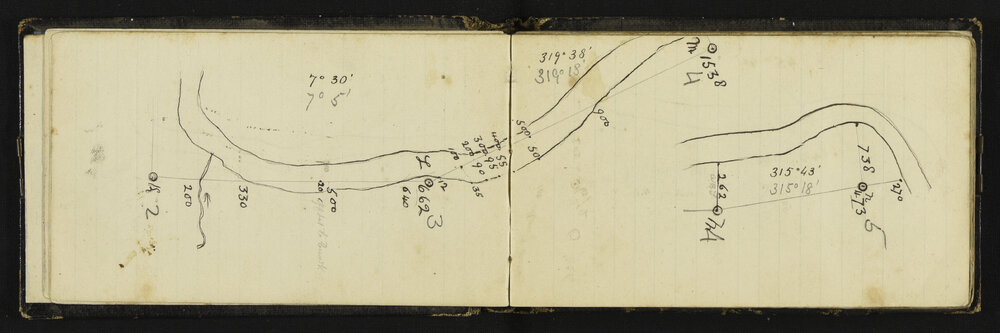 7° 30'
7° 5'
2
200
330
20
500
640
662
3
12
L
100
200
300
400
90
95
55
35
319° 38'
319° 18'
500
50
900
m
1538
4
262
315° 43'
315° 18'
738
n
473
5
270